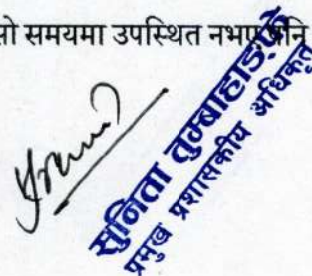 सो समयमा उपस्थित नभए पनि
सुनिता तुम्बाहाङफे
प्रमुख प्रशासकीय अधिकृत